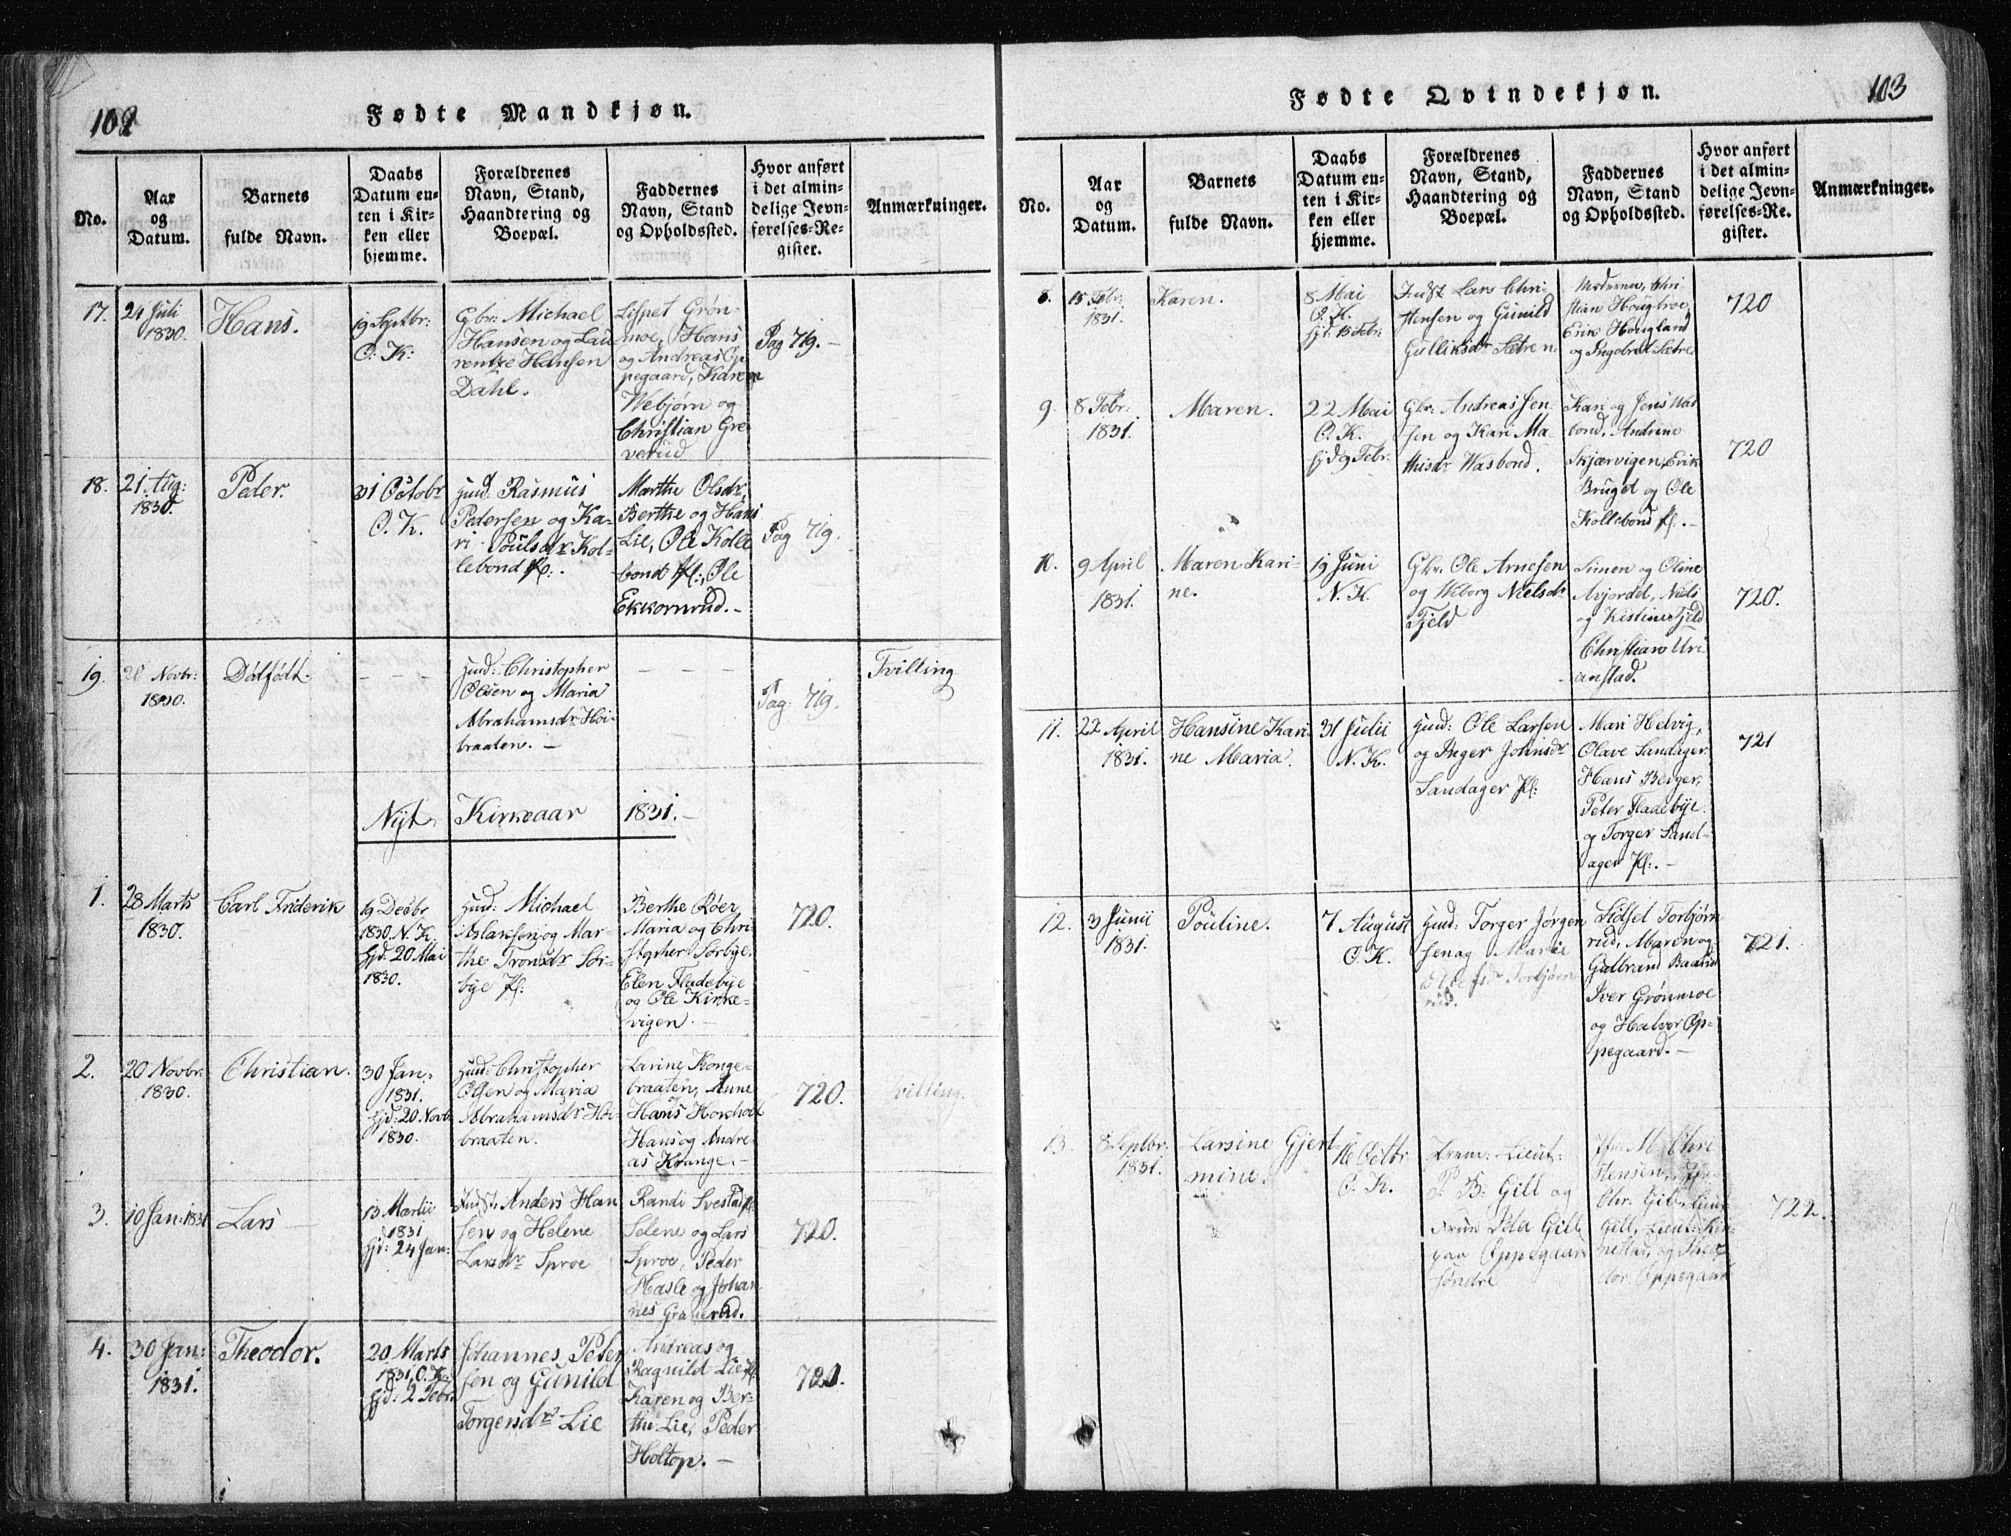 102
Fødte Mandkjøn.
No.
Aar
og
Datum.
Barnets
fulde Navn.
Daabs
Datum en-
ten i Kir-
ken eller
hjemme.
Forældrenes
Navn, Stand,
Haandtering og
Boepæl.
Faddernes
Navn, Stand
og Opholdssted.
Hvor anført
i det almin-
delige Jevn-
førelses-Re-
gister.
Anmærkninger.
17.
24 Juli
1830.
Hans.
19 Septbr:
O. K:
Gbr: Michael
Hansen og Lau
rentze Hansen
Dahl.
Lispet Grøn-
moe, Hans
og Andreas Op
pegaard, Karen
Webjørn og
Christian Gre
verud
Pag 719.-
18.
21. Aug:
1830.
Peder.
31 Octobr
O. K.
Huusm. Rasmus
Pedersen og Ka-
ri Poulsdr Kol-
lebond Pl:.
Marthe Olsdr,
Berthe og Hans
Lie, Ole Kolle
bond Pl:, Ole
Ekkornrud.-
Pag 719.
19.
20 Novbr:
1830.
Dødfødt.
- - -
Huusm: Christopher
Olsen og Maria
Abrahamsdr Hoi-
braaten. -
- - -
Pag: 719.
Tvilling
Nyt Kirkeaar 1831.-
1.
28 Marts
1830.
Carl Friderik
19 Decbr
1830 N. K.
Hjd: 20 Mai
1830.
Huusm: Michael
Aslaksen og Mar-
the Tronsdr Sør-
bye Pl:
Berthe Røer
Maria og Chri-
stopher Sørbye,
Elen Fladebye
og Ole Kirke-
vigen. -
720.
2.
20 Novbr.
1830.
Christian.
30 Jan:
1831.
Hjd: 20 Novb
1830.
Huusm: Christopher
Olsen og Maria
Abrahamsdr Hoi-
braaten.
Larine Konge-
braaten, Anne
Hans
Hans og Andre-
as Krange.-
720.
Tvilling.
3.
10 Jan: 1831
Lars
13 Martii
1831
Hjd: 24 Jan:
Indst: Anders Han
sen og Helene
Larsdr Sproe
Randi Svestad Pl:
Selene og Lars
Sproe, Peder
Hasle og Johan
nes Graverud.
720.
4.
30 Jan:
1831.
Theodor.
20 Marts
1831 O. K.
Hjd: 2 Febr
Johannes Peter
sen og Gunild
Torgersdr Lie
Andreas og
Ragnild Lie Pl:
Karen og Ber-
the Lie, Peder
Holtop. -
720.
103
Fødte Qvindekjøn.
No.
Aar
og
Datum.
Barnets
fulde Navn.
Daabs
Datum en-
ten i Kir-
ken eller
hjemme.
Forældrenes
Navn, Stand,
Haandtering og
Boepæl.
Faddernes
Navn, Stand
og Opholdssted.
Hvor anført
i det almin-
delige Jevn-
førelses-Re-
gister.
Anmærkninger.
8.
15 Febr
1831.
Karen.
8 Mai
O. K.
Hjd. 13 Febr:
Indst Lars Chri-
stensen og Gunild
Gulliksdr Sætren:
Moderen, Chri
stian Hougbroe,
Erik Hougland
og Ingebret Sætre
720
9.
8 Febr:
1831.
Maren.
22 Mai
O. K.
Hjd 9 Febr:
Gbr: Andreas Jen-
sen og Kari Ma-
thisdr Wasbond.
Kari og Jens Was
bond. Andrine
Skjærvigen, Erik
Bruget og Ole
Kollebond Pl.-
720
10.
9 April
1831.
Maren Kari-
ne.
19 Juni
N. K.
Gbr. Ole Arnesen
og Weborg Nielsdr
Fjeld
Simen og Oline
Avjordet, Niels
og Kistine Fjeld
Christian
anstad.
720.
11.
22 April
1831.
Hansine Kari
ne Maria.
31 Julii
N. K.
Huusm: Ole Larsen
og Inger Johnsdr
Sandager Pl:
Mari Helvig,
Olave Sandager
Hans Berger,
Peter Fladebye
og Torger Sand-
ager Pl:.-
721
12.
3 Junii
1831.
Pouline.
7 August
O. K.
Huusm: Torger Jørgen
sen og Marie
Torbjørn
rud.
Lidset Torbjørn
rud, Maren og
Gulbrand
Iver Grønmoe
og Halvor Op-
pegaard.-
721.
13.
8 Septbr.
1831.
Larsine Gjert
mine.
16 Octbr
O. K.
Prem: Lieut:
P. B: Gill og
Frue Gill
paa Oppegaard
søndre
M. Chri
stensen,
Chr. Gill, Lieut
Gill, Lieut:
og Theo
dor Oppegaard
722.